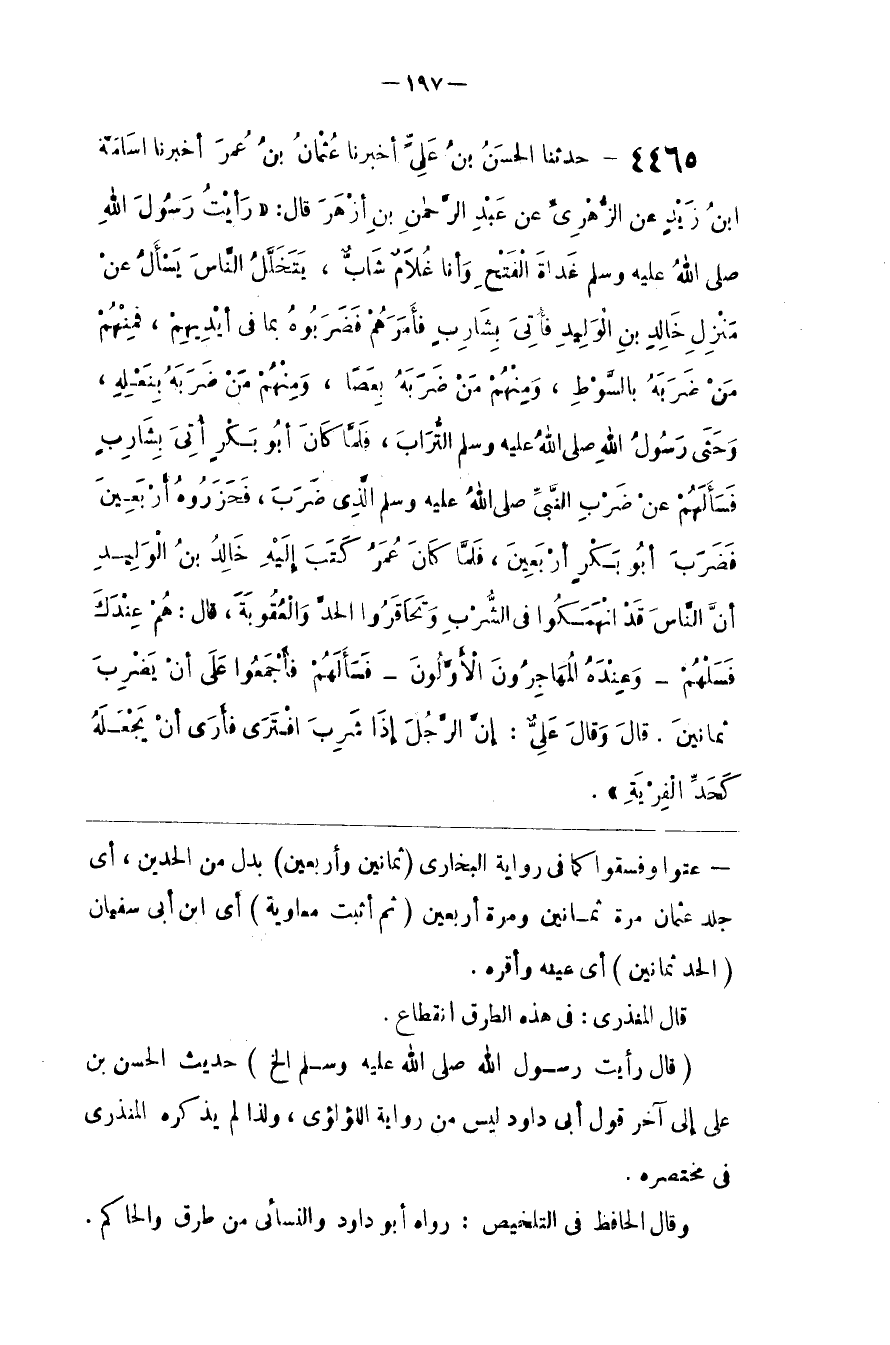 — ١٩٧ —
٤٤٦٥ – حدثنا الحسَنُ بنُ عَلِيٍّ أخبرنا عُثْمانُ بنُ عُمرَ أخبرنا اسَامَةَ
ابنُ زَيْدٍ عن الزُّهْرِىِّ عن عَبْدِ الرَّحْمٰنِ بنِ أزْهَرَ قال: « رَأيْتُ رَسُولَ اللهِ
صلى اللهُ عليه وسلم غَدَاةَ الْفَتْحِ وَأنا غُلَامٌ شَابٌّ ، يَتَخَلَّلُ النَّاسَ يَسْألُ عنْ
مَنْزِلِ خَالِدِ بنِ الْوَلِيدِ فَأُتِىَ بِشَارِبٍ فأمَرَهُمْ فَضَرَبُوهُ بما فى أيْدِيهِمْ ، فَمِنْهُمْ
مَنْ ضَرَبَهُ بالسَّوْطِ ، وَمِنْهُمْ مَنْ ضَرَبَهُ بِعَصًا ، وَمِنْهُمْ مَنْ ضَرَبَهُ بِنَعْـلِهِ ،
وَحَثَى رَسُولُ اللهِ صلى اللهُ عليه وسلم التُّرَابَ ، فَلمَّا كَانَ أبُو بَـكْرٍ أُتِىَ بِشَارِبٍ
فَسَألَهُمْ عنْ ضَرْبِ النَّبيِّ صلى اللهُ عليه وسلم الَّذِى ضَرَبَ ، فَحَزَرُوهُ أرْبَعـِينَ
فَضَرَبَ أبُو بَـكْرٍ أرْبَعِينَ ، فَلمَّا كَانَ عُمَرُ كَتَبَ إلَيْهِ خَالِدُ بنُ الْوَلِيـدِ
أنَّ النَّاسَ قَدْ انْهَمَـكُوا فى الشُّرْبِ وَتَحَاقَرُوا الحدَّ وَالْعُقُوبَةَ ، قال : هُمْ عِنْدَكَ
فَسَلْهُمْ – وَعِنْدَهُ الْمُهَاجِرُونَ الْأوَّلُونَ – فَسَألَهُمْ فأجْمَعُوا عَلَى أنْ يَضْرِبَ
ثمانينَ . قالَ وَقالَ عَلِيٌّ : إنَّ الرَّجُلَ إذَا شَرِبَ افْتَرَى فأرَى أنْ يَجْعَـلَهُ
كَحَدِّ الْفِرْيَةِ » .
— عتوا وفسقوا كما فى رواية البخارى (ثمانين وأربعين) بدل من الحدين ، أى
جلد عثمان مرة ثمـانين ومرة أربعين ( ثم أثبت معاوية ) أى ابن أبى سفيان
( الحد ثمانين ) أى عينه وأقره .
قال المنذرى : فى هذه الطرق انقطاع .
( قال رأيت رسـول الله صلى الله عليه وسـلم الخ ) حديث الحسن بن
على إلى آخر قول أبى داود ليس من رواية اللؤلؤى ، ولذا لم يذكره المنذرى
فى مختصره .
وقال الحافظ فى التلخيص : رواه أبو داود والنسائى من طرق والحاكم .